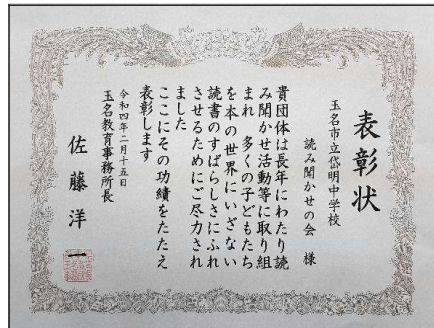 表彰状
玉名市立岱明中学校
読み聞かせの会 様
貴団体は長年にわたり読
み聞かせ活動等に取り組
まれ 多くの子どもたち
を本の世界にいざない
読書のすばらしさにふれ
させるためにご尽力され
ました
ここにその功績をたたえ
表彰します
令和四年二月十五日
玉名教育事務所長
佐藤洋一